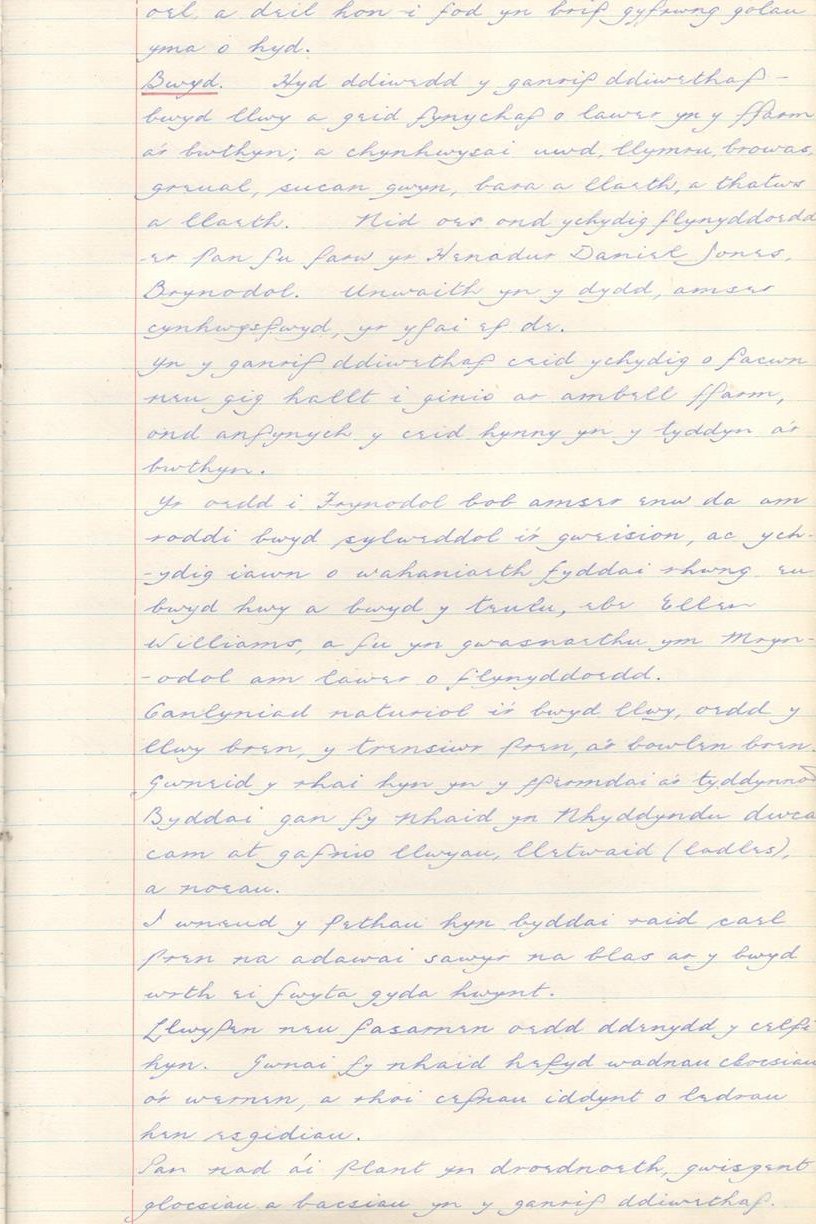 oel, a deil hon i fod yn brif gyfrwng golau
yma o hyd.
Bwyd. Hyd ddiwedd y ganrif ddiwethaf -
bwyd llwy a geid fynychaf o lawer yn y ffarm
a'r bwthyn; a chynhwysai uwd, llymru, browas,
greual, sucan gwyn, bara a llaeth, a thatws
a llaeth. Nid oes ond ychydig flynyddoedd
er pan fu farw yr Henadur Daniel Jones,
Brynodol. Unwaith yn y dydd, amser
cynhwysfwyd, yr yfai ef de.
Yn y ganrif ddiwethaf ceid ychydig o facwn
neu gig hallt i ginio ar ambell ffarm,
ond anfynych y ceid hynny yn y tyddyn a'r
bwthyn.
Yr oedd i Frynodol bob amser enw da am
roddi bwyd sylweddol i'r gweision, ac ych-
-ydig iawn o wahaniaeth fyddai rhwng eu
bwyd hwy a bwyd y teulu, ebe Ellen
Williams, a fu yn gwasnaethu ym Mryn-
-odol am lawer o flynyddoedd.
Canlyniad naturiol i'r bwyd llwy, oedd y
llwy bren, y trensiwr pren, a'r bowlen bren.
Gwneid y rhai hyn yn y ffermdai a'r tyddynnod
Byddai gan fy nhaid yn Nhyddyndu dwca
cam at gafnio llwyau, lletwaid (ladles),
a noeau.
I wneud y pethau hyn byddai raid cael
pren na adawai sawyr na blas ar y bwyd
wrth ei fwyta gyda hwynt.
Llwyfen neu fasarnen oedd ddenydd y celfi
hyn. Gwnai fy nhaid hefyd wadnau clocsiau
o'r wernen, a rhoi cefnau iddynt o ledrau
hen esgidiau.
Pan nad ái plant yn droednoeth, gwisgent
glocsiau a bacsiau yn y ganrif ddiwethaf.